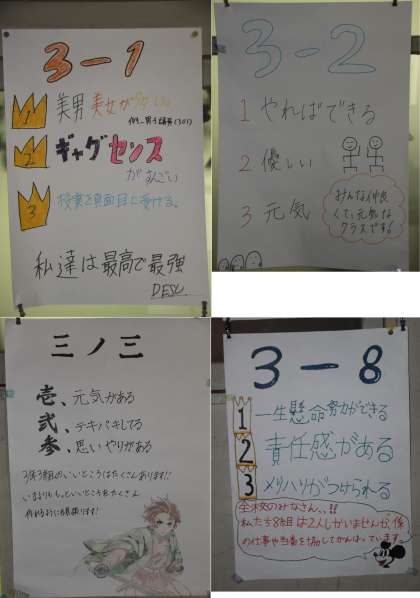 3-1
1 美男美女が多い
2 ギャグセンス
がすごい
3 授業を真面目に受ける。
私達は最高で最強
DESU
3-2
1 やればできる
2 優しい
3 元気
みんな仲良
くて、元気な
クラスである
三ノ三
壱、元気がある
弐、テキパキしてる
参、思いやりがある
3年3組のいいところはたくさんあります!!
いまよりもっといいところをたくさん
作れるように頑張ります!
3-8
1 一生懸命努力ができる
2 責任感がある
3 メリハリがつけられる
全校のみなさん、、!!
私たち8組は2人しかいませんが、係
の仕事や当番を協力してがんばっています。